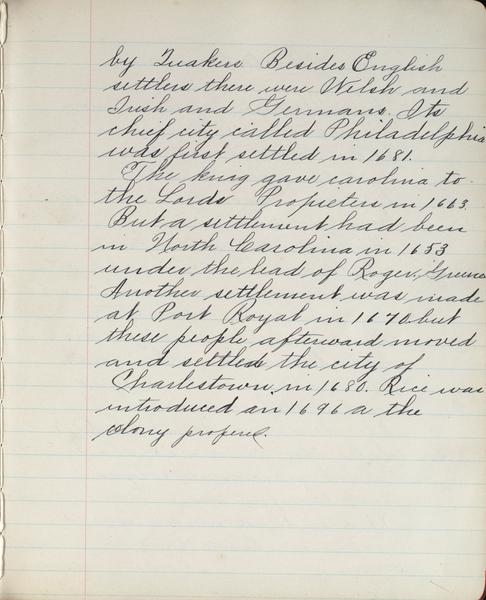 by Quakers Besides English
settlers there were Welsh and
Irish and Germans. Its
chief city called Philadelphia
was first settled in 1681.
The king gave carolina to
the Lords Propieters in 1663.
But a settlement had been
in North Carolina in 1653
under the lead of Roger Greene
Another settlement was made
at Port Royal in 1670 but
these people afterward moved
and settled the city of
Charlestown in 1680. Rice was
introduced in 1696 a the
colony